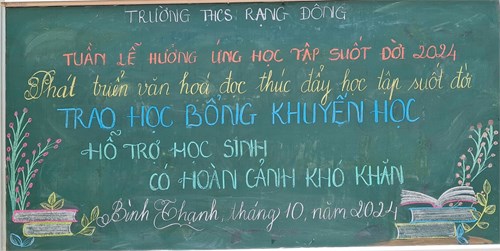 TRƯỜNG THCS RẠNG ĐÔNG
TUẦN LỄ HƯỞNG ỨNG HỌC TẬP SUỐT ĐỜI 2024
Phát triển văn hoá đọc thúc đẩy học tập suốt đời
TRAO HỌC BỔNG KHUYẾN HỌC
HỖ TRỢ HỌC SINH
CÓ HOÀN CẢNH KHÓ KHĂN
Bình Thạnh, tháng 10, năm 2024